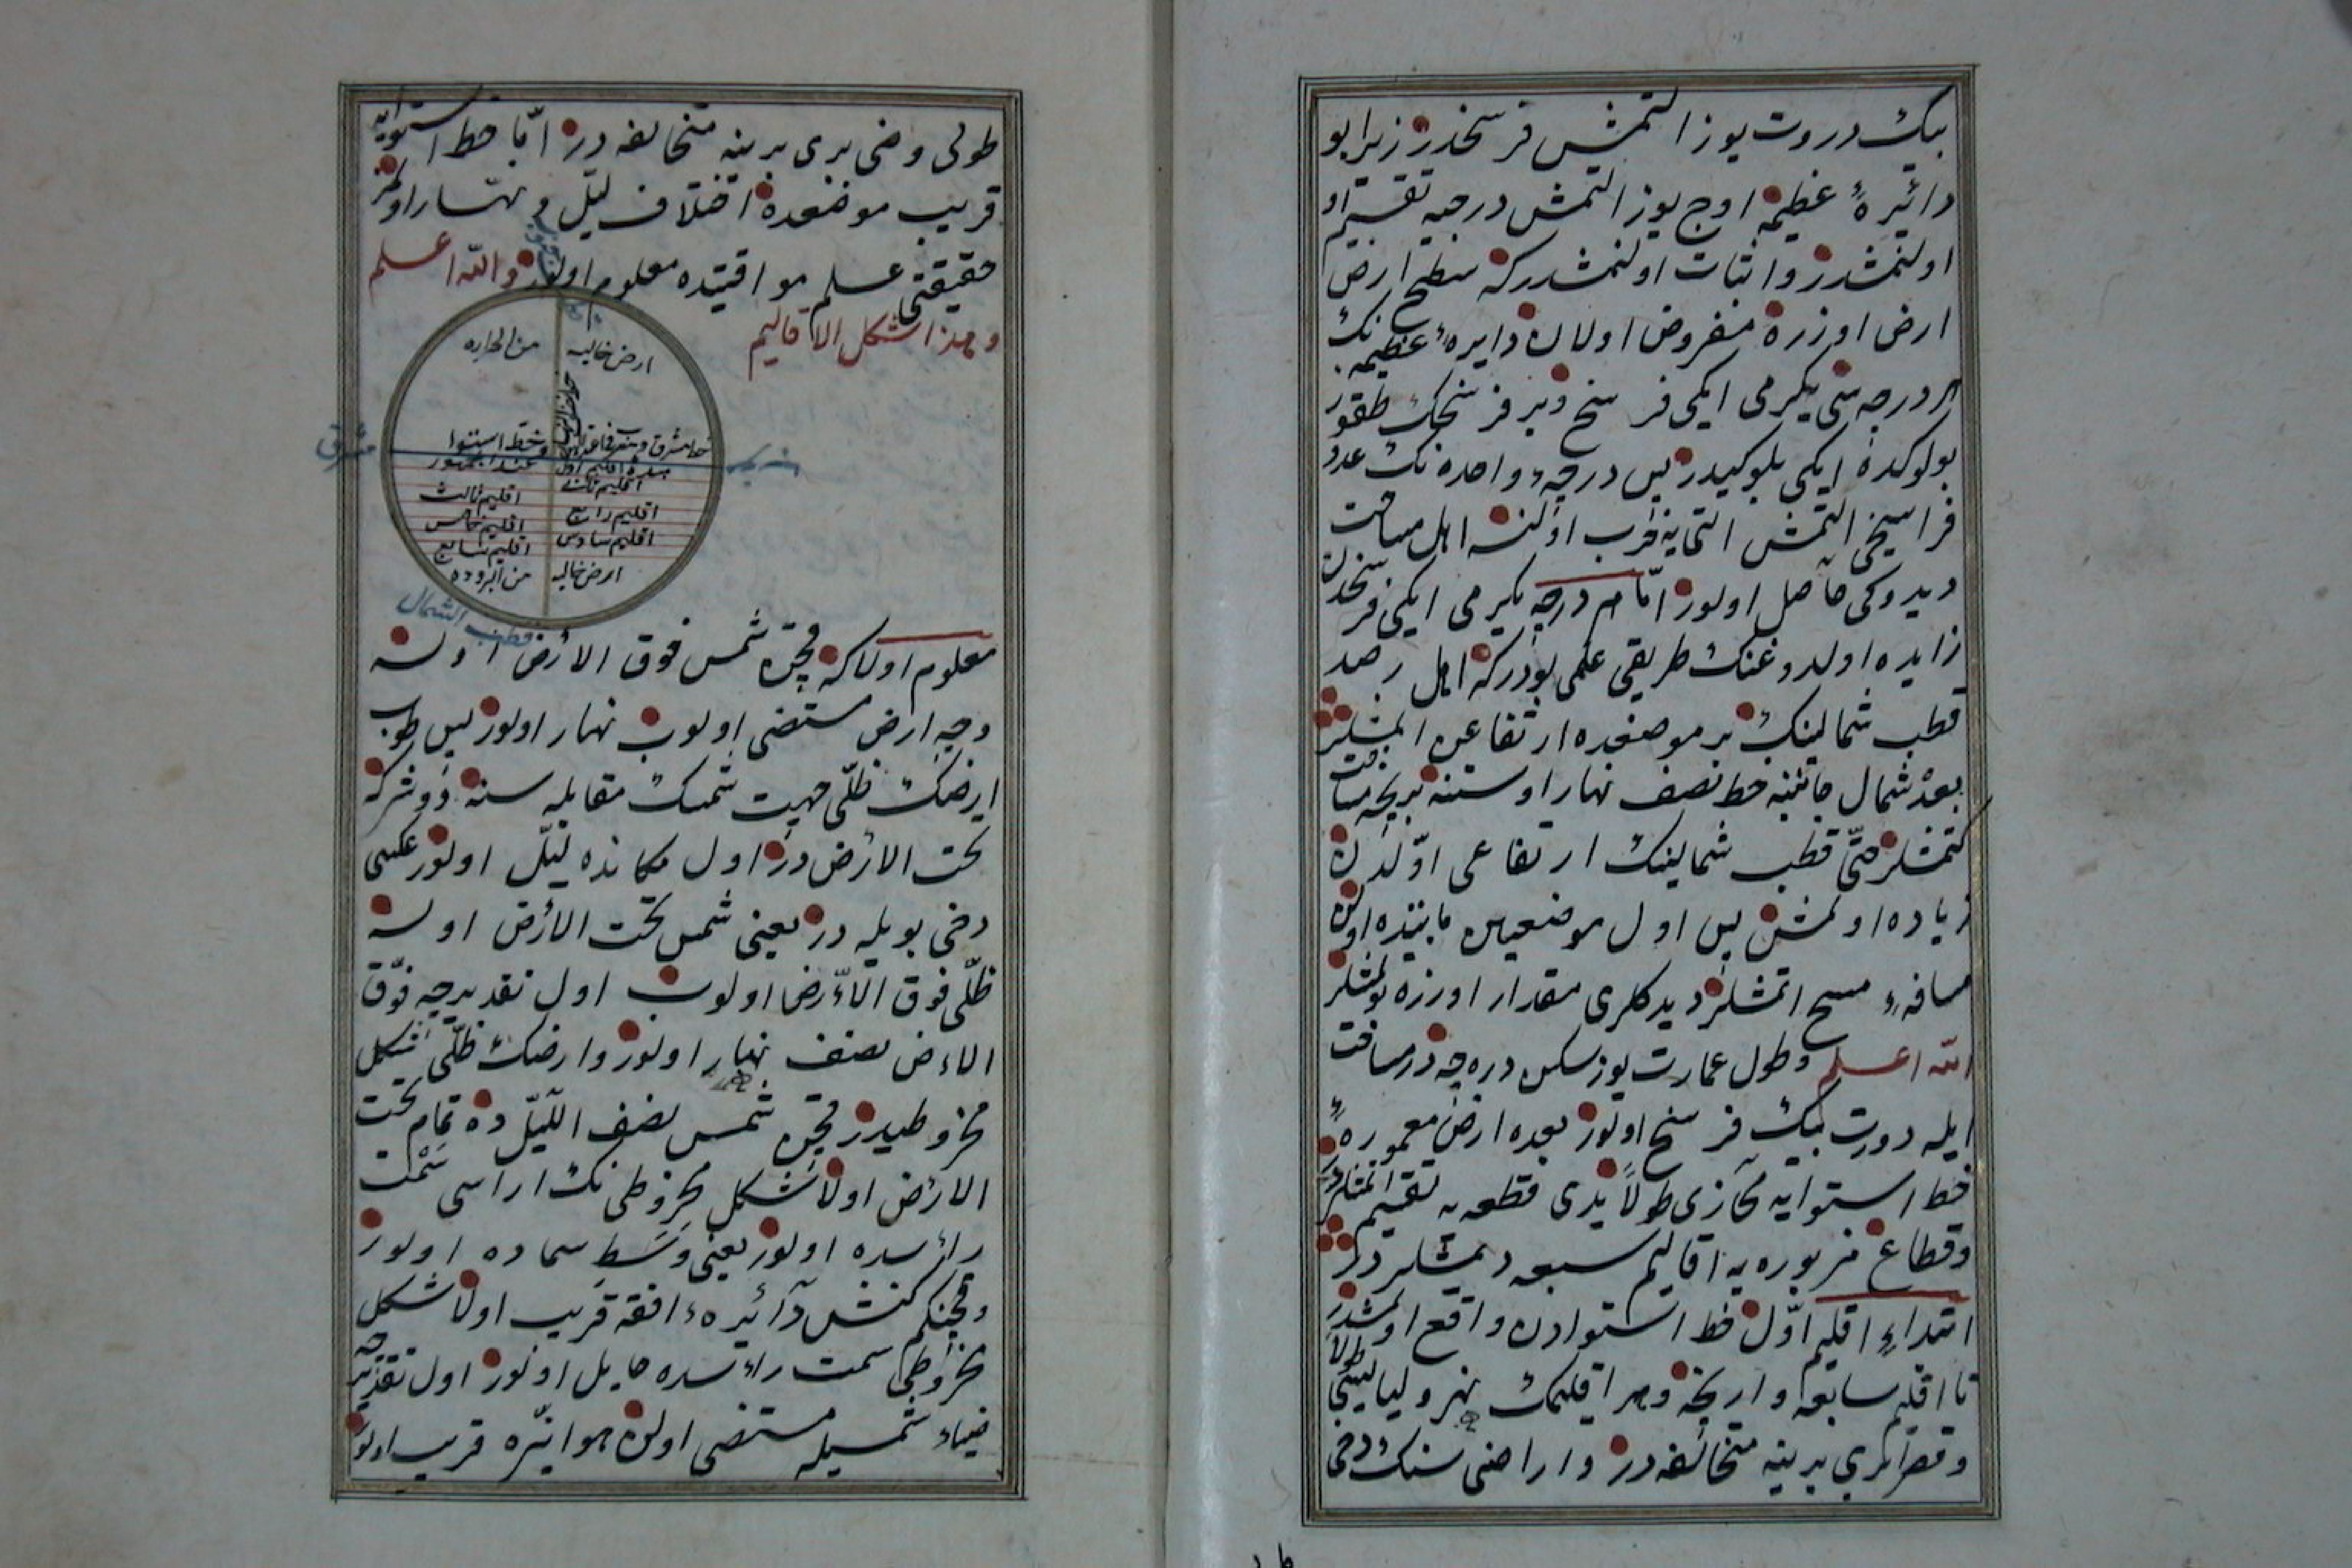 بيك دروت يوز التمش فرسخدر زيرا بو
دائيرهٔ عظيمه اوج يوز التمش درجيه تقسيم او
اولنمشدر واثبات اولنمشدركه سطح ارض
ارض اوزره مفروض اولان دايرهٔ عظيمه نك
هر درجه سى يكرمى ايكى فرسخ وبر فرسخك طقوز
بولوكده ايكى بلوكيدر پس درجهء واحده نك عدد
فراسيخى التمش التى يه ضرب اولنسه اهل مساحت
ديدوكى حاصل اولور امّا هر درجه يكيرمى ايكى فرسخدن
زايده اولدوغنك طريقى علمى بودركه اهل رصد
قطب شمالينك بر موضعده ارتفاعن المشلر
بعده شمال جانبنه خط نصف نهار اوستنه بريجه مسافت
كتمشلر حتّى قطب شمالينك ارتفاعى اوّلدن
زياده اولمش پس اول موضعين مابينده اولن
مسافهء مسح اتمشلر ديدكلرى مقدار اوزره بولمشلر
الله اعلم وطول عمارت يوز سكسن درجه در مسافت
ايله دورت بيك فرسخ اولور بعده ارض معموره ءِ
خط استوايه محازى طولاً يدى قطعه يه تقسيم اتمشلر
وقطاع مزبوره يه اقاليم سبعه ديمشلر در
ابتداءِ اقليم اوّل خط استوادن واقع اولمشدر طولاً
تا اقليم سابعه وارينجه وهر اقليمك نهر وليالينى
وقصرلرى برينه متخالفه در واراضى سنك دخى
طولى
طولى وضى برى برينه متخالفه در امّا خط استوايه
قريب موضعده اختلاف ليل ونهار اولمز
حقيقتى علم مواقيتده معلوم اولور والله اعلم
وهذا شكل الاقاليم
ارض خاليه من الحراره
خط استوا
عند الجمهور
مبدء اقليم اول
اقليم ثانى
اقليم ثالث
اقليم رابع
اقليم خامس
اقليم سادس
اقليم سابع
ارض خاليه من البروده
مشرق
مغرب
قطب الشمال
معلوم اولاكه قچن شمس فوق الارض اولسه
وجه ارض مستضى اولوب نهار اولور پس طوب
ارضك ظلّى جهت شمسك مقابله سنه دوشركه
تحت الارض در اول مكانده ليل اولور عكسى
دخى بويله در يعنى شمس تحت الارض اولسه
ظلّى فوق الارض اولوب اول تقديرجه فوق
الارض نصف نهار اولور وارضك ظلّى شكل
مخروطيدر قچن شمس نصف الليل ده تمام تحت
الارض اولا شكل مخروطى نك اراسى سمت
رائسده اولور يعنى وسط سماده اولور
وقچنكم كنش دائيرهء افقه قريب اولا شكل
مخروطى سمت راءسده حايل اولور اول تقديرجه
ضياء شمسيله مستضى اولن هوا نيّره قريب اولور